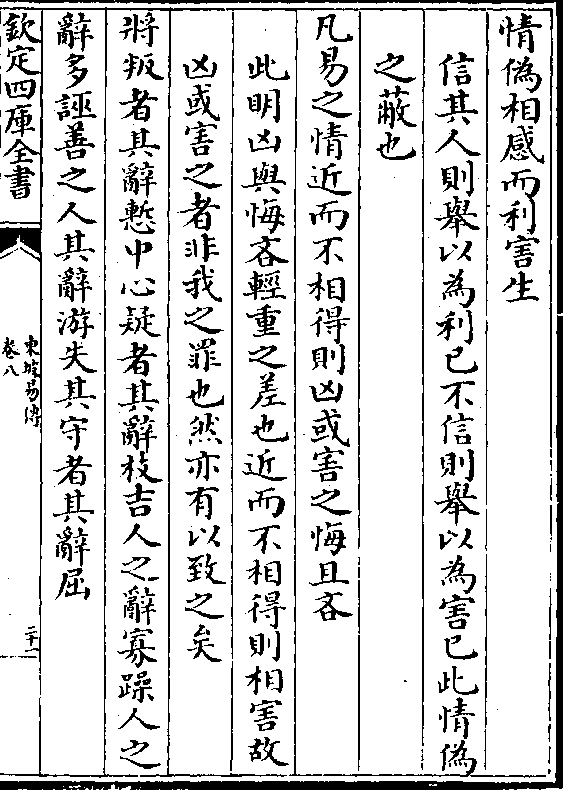 情偽相感而利害生
信其人則舉以為利已不信則舉以為害已此情偽
之蔽也
凡易之情近而不相得則凶或害之悔且吝
此明凶與悔吝輕重之差也近而不相得則相害故
凶或害之者非我之罪也然亦有以致之矣
將叛者其辭慙中心疑者其辭枝吉人之辭寡躁人之
辭多誣善之人其辭游失其守者其辭屈
欽定四庫全書
東坡易傳
卷八
二十一